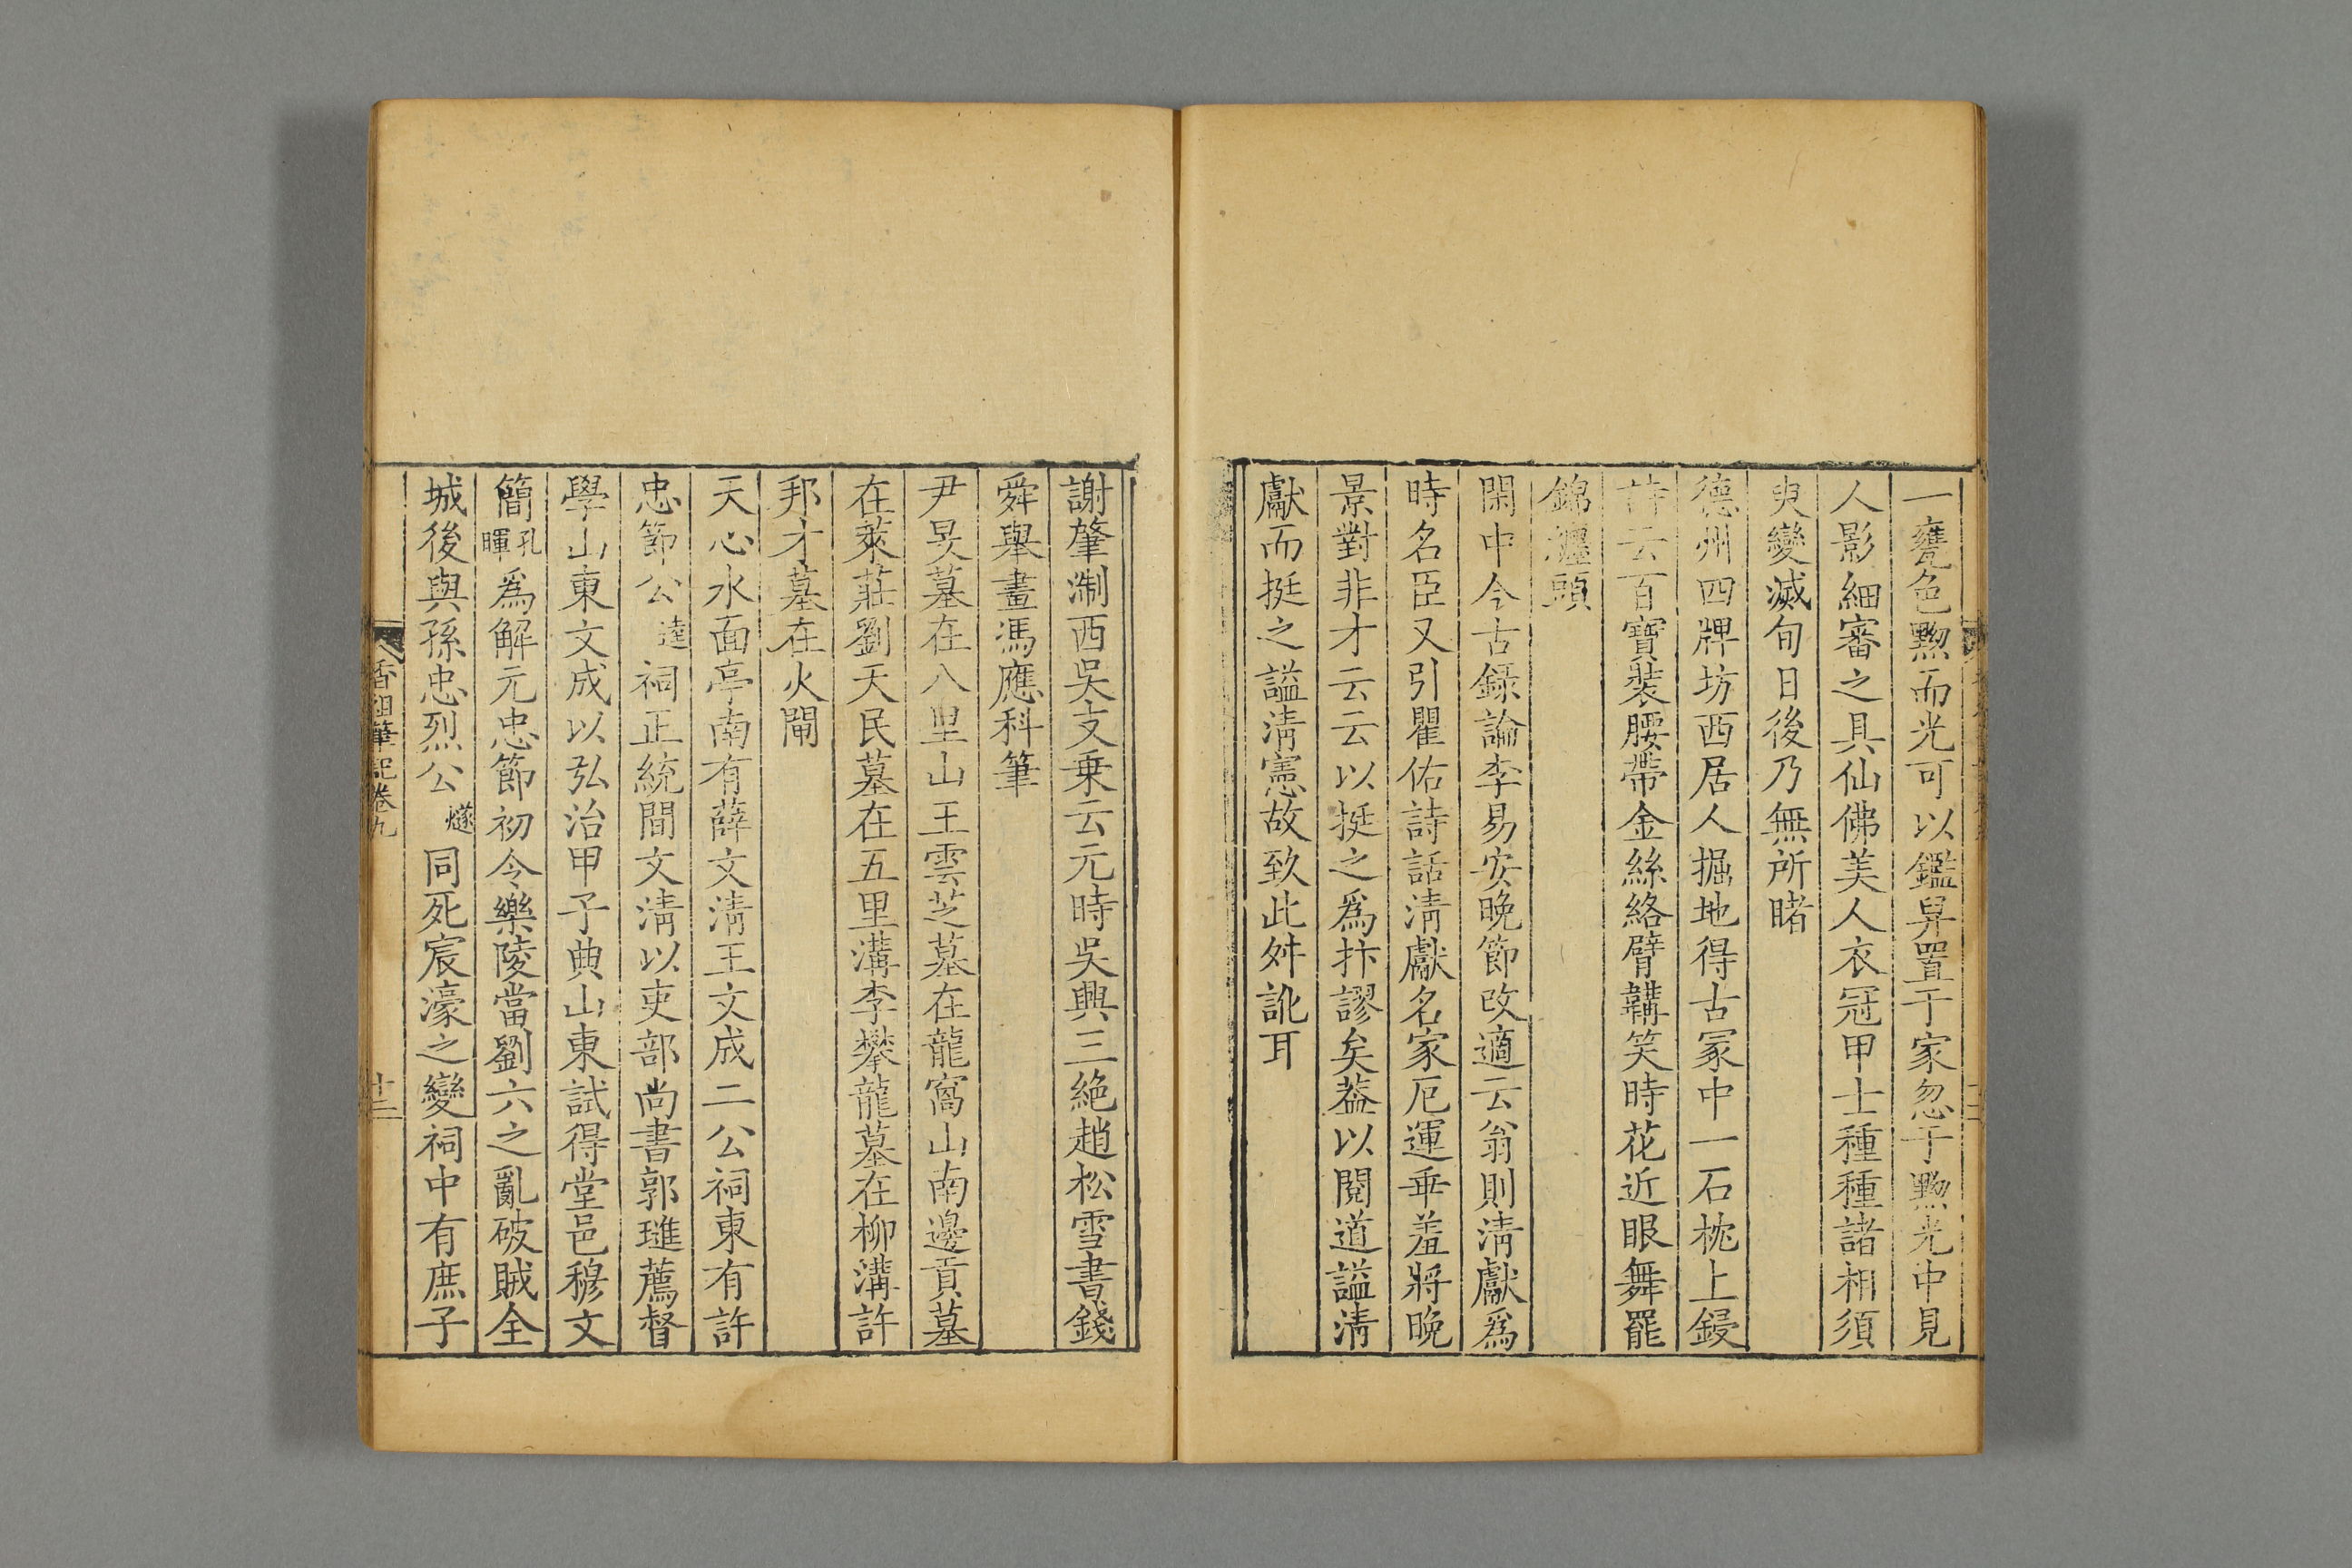 一甕色黝而光可以鑑舁置于家忽于黝光中見
人影細審之具仙佛美人衣冠甲士種種諸相須
臾變滅旬日後乃無所睹
德州四牌坊西居人掘地得古冢中一石枕上鋟
詩云百寶裝腰帶金絲絡臂韝笑時花近眼舞罷
錦纏頭
閑中今古錄論李易安晚節改適云翁則清獻爲
時名臣又引瞿佑詩話清獻名家厄運乖羞將晚
景對非才云云以挺之爲抃謬矣葢以閱道謚清
獻而挺之謚清憲故致此舛訛耳
謝肇淛西吳支乗云元時吳興三絕趙松雪書錢
舜舉畫馮應科筆
尹旻墓在八里山王雲芝墓在龍窩山南邊貢墓
在萊莊劉天民墓在五里溝李攀龍墓在柳溝許
邦才墓在火閘
天心水面亭南有薛文清王文成二公祠東有許
忠節公逵祠正統間文清以吏部尚書郭璡薦督
學山東文成以弘治甲子典山東試得堂邑穆文
簡孔暉爲解元忠節初令樂陵當劉六之亂破賊全
城後與孫忠烈公燧同死宸濠之變祠中有庶子
香祖筆記卷九
十二